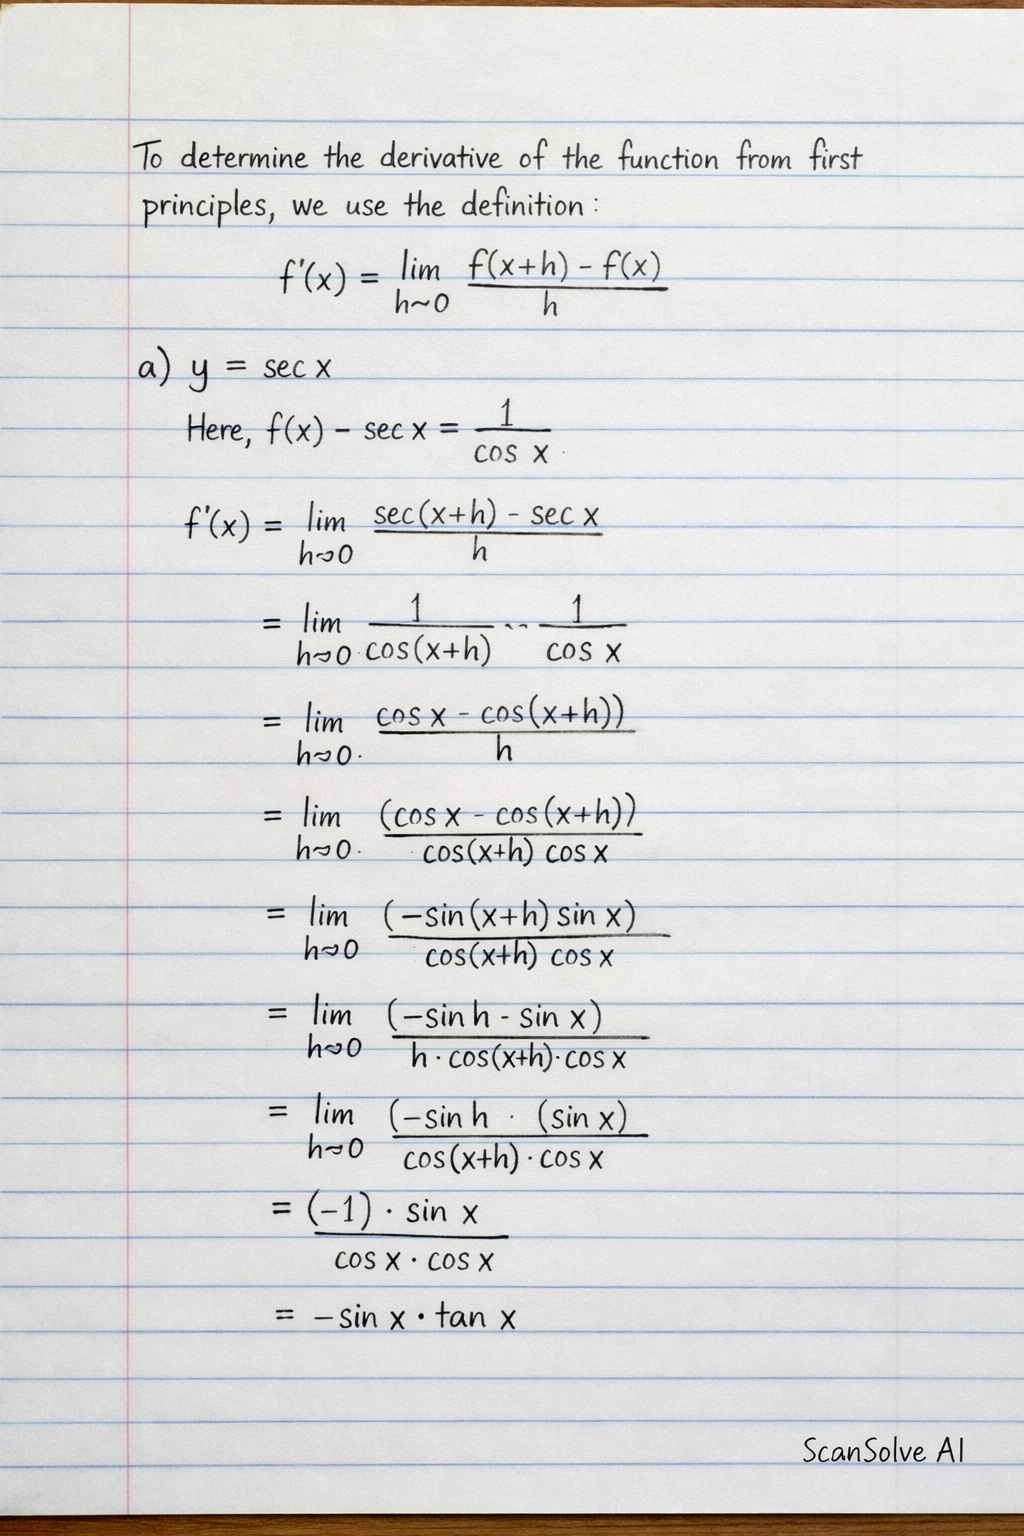 To determine the derivative of the function from first
principles, we use the definition:
f'(x) = lim h~0 f(x+h) - f(x) / h
a) y = sec x
Here, f(x) - sec x = 1 / cos x
f'(x) = lim h⇝0 sec(x+h) - sec x / h
= lim h⇝0 1 / cos(x+h) -- 1 / cos x
= lim h⇝0. cos x - cos(x+h)) / h
= lim h⇝0. (cos x - cos(x+h)) / cos(x+h) cos x
= lim h⇝0 (-sin(x+h) sin x) / cos(x+h) cos x
= lim h⇝0 (-sin h - sin x) / h · cos(x+h) · cos x
= lim h⇝0 (-sin h · (sin x) / cos(x+h) · cos x
= (-1) · sin x / cos x · cos x
= -sin x · tan x
ScanSolve AI